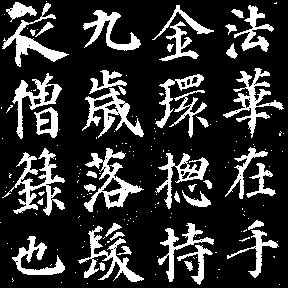 法華在手
金環揔持
九歲落髮
從僧籙也